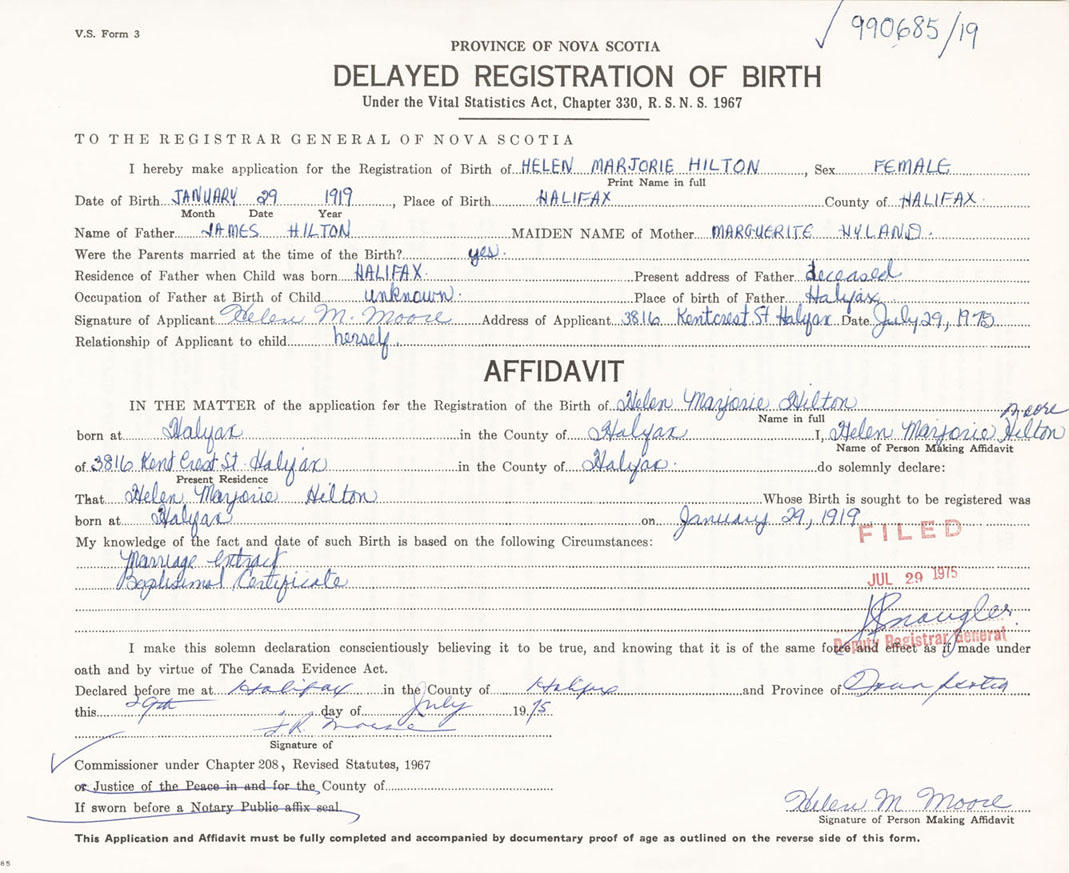 V.S. Form 3
990685/19
PROVINCE OF NOVA SCOTIA
DELAYED REGISTRATION OF BIRTH
Under the Vital Statistics Act, Chapter 330, R.S.N.S. 1967
TO THE REGISTRAR GENERAL OF NOVA SCOTIA
I hereby make application for the Registration of Birth of HELEN MARJORIE HILTON, Sex FEMALE
Print Name in full
Date of Birth JANUARY 29 1919, Place of Birth HALIFAX County of HALIFAX.
Month Date Year
Name of Father JAMES HILTON MAIDEN NAME of Mother MARGUERITE HYLAND.
Were the Parents married at the time of the Birth? yes.
Residence of Father when Child was born HALIFAX. Present address of Father deceased
Occupation of Father at Birth of Child unknown. Place of birth of Father Halifax
Signature of Applicant Helen M. Moore Address of Applicant 3816 Kentcrest St Halifax Date July 29, 1975
Relationship of Applicant to child herself.
AFFIDAVIT
IN THE MATTER of the application for the Registration of the Birth of Helen Marjorie Hilton
Name in full
Moore
born at Halifax in the County of Halifax I, Helen Marjorie Hilton
Name of Person Making Affidavit
of 3816 Kent Crest St. Halifax in the County of Halifax. do solemnly declare:
Present Residence
That Helen Marjorie Hilton Whose Birth is sought to be registered was
born at Halifax on January 29, 1919
FILED
My knowledge of the fact and date of such Birth is based on the following Circumstances:
Marriage extract
Baptismal Certificate
JUL 29 1975
Deputy Registrar General
I make this solemn declaration conscientiously believing it to be true, and knowing that it is of the same force and effect as if made under
oath and by virtue of The Canada Evidence Act.
Declared before me at Halifax in the County of Halifax and Province of Nova Scotia
this 29th day of July 1975
Signature of
Commissioner under Chapter 208, Revised Statutes, 1967
or Justice of the Peace in and for the County of
If sworn before a Notary Public affix seal.
Helen M Moore
Signature of Person Making Affidavit
This Application and Affidavit must be fully completed and accompanied by documentary proof of age as outlined on the reverse side of this form.
85